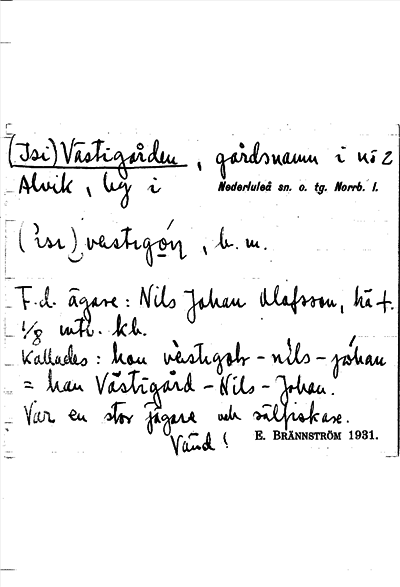 (Isi) Västigården, gårdsnamn i nö 2
Alvik, lig i Nederluleå sn. o. tg. Norrb. l.
b. m.
F.d. ägare: Nils Johan Olofsson,
1/8 mtl. kb.
Kallades: han västigoḷr-nils-johan
= han Västigård-Nils-Johan.
Var en stor jägare och sälfiskare.
Vänd!
E. BRÄNNSTRÖM 1931.